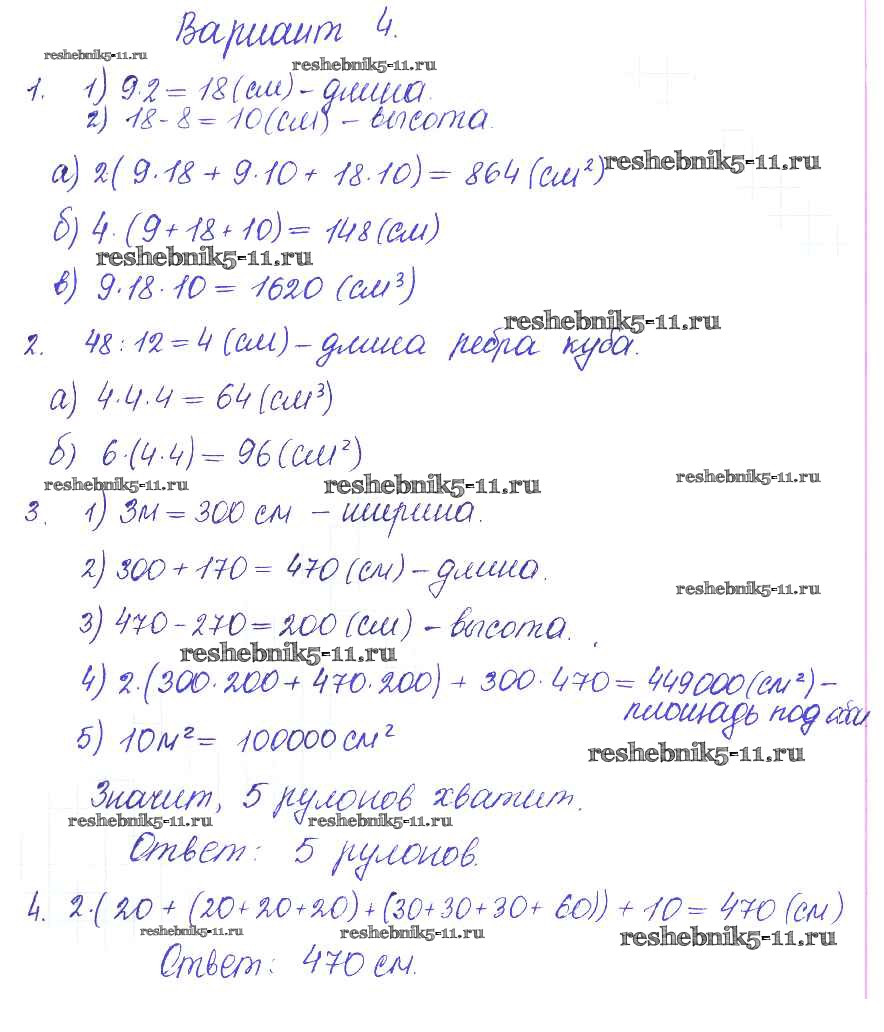 Вариант 4.
reshebnik5-11.ru
reshebnik5-11.ru
1. 1) 9·2 = 18 (см) - длина.
2) 18 - 8 = 10 (см) - высота.
а) 2(9·18 + 9·10 + 18·10) = 864 (см²)
reshebnik5-11.ru
б) 4·(9 + 18 + 10) = 148 (см)
reshebnik5-11.ru
в) 9·18·10 = 1620 (см³)
reshebnik5-11.ru
2. 48 : 12 = 4 (см) - длина ребра куба.
а) 4·4·4 = 64 (см³)
б) 6·(4·4) = 96 (см²)
reshebnik5-11.ru
reshebnik5-11.ru
reshebnik5-11.ru
3. 1) 3м = 300 см - ширина.
2) 300 + 170 = 470 (см) - длина.
reshebnik5-11.ru
3) 470 - 270 = 200 (см) - высота.
reshebnik5-11.ru
4) 2·(300·200 + 470·200) + 300·470 = 449000 (см²) -
площадь под обои
5) 10м² = 100000 см²
reshebnik5-11.ru
Значит, 5 рулонов хватит.
reshebnik5-11.ru
reshebnik5-11.ru
Ответ: 5 рулонов.
4. 2·(20 + (20+20+20) + (30+30+30+60)) + 10 = 470 (см)
reshebnik5-11.ru
reshebnik5-11.ru
reshebnik5-11.ru
Ответ: 470 см.